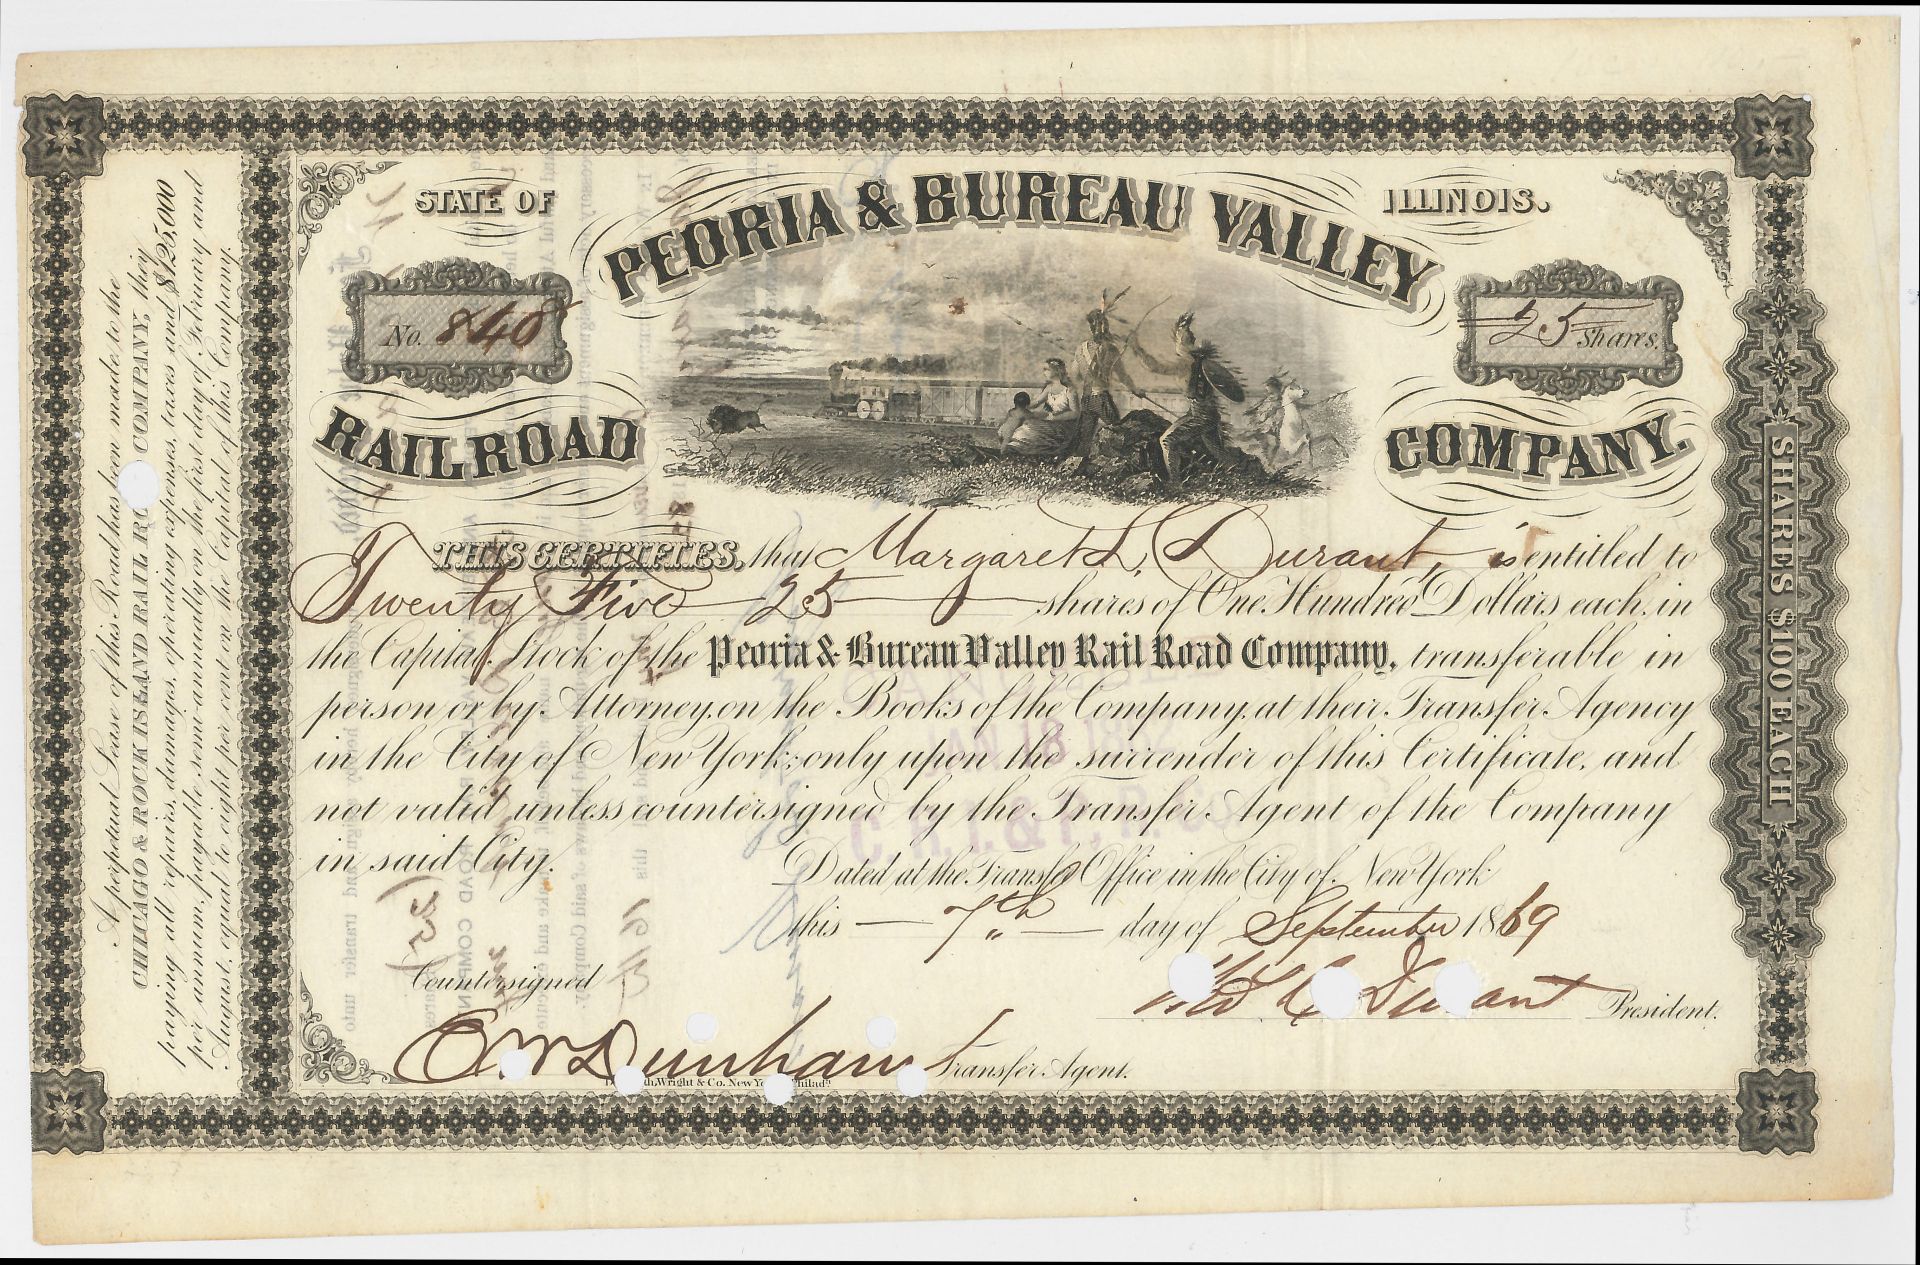 STATE OF
ILLINOIS.
PEORIA & BUREAU VALLEY
No. 840
25 Shares.
RAILROAD
COMPANY.
THIS CERTIFIES, that Margaret L. Durant, is entitled to
Twenty Five 25 shares of One Hundred Dollars each, in
the Capital Stock of the Peoria & Bureau Valley Rail Road Company, transferable in
person or by Attorney, on the Books of the Company, at their Transfer Agency
in the City of New York; only upon the surrender of this Certificate, and
not valid unless countersigned by the Transfer Agent of the Company
in said City.
Dated at the Transfer Office in the City of New York
this 7th day of September 1869
Countersigned
C W Dunham Transfer Agent.
Thos C Durant President.
Wright & Co. New York & Philada.
A perpetual Lease of this Road has been made to the
CHICAGO & ROCK ISLAND RAIL RO COMPANY, they
paying all repairs, damages, operating expenses, taxes and $125,000
per annum, payable semi-annually on the first day of February and
August, equal to eight per cent on the Capital of this Company.
SHARES $100 EACH
CANCELLED
JAN 18
C. R. I. & P.